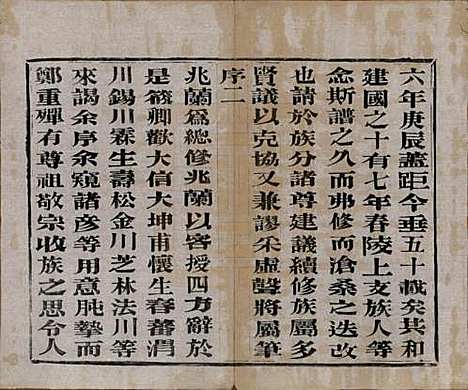 六年庚辰蓋距今垂五十載矣其和
建國之十有七年春陵上支族人等
念斯譜之久而弗修而滄桑之迭改
也請於族分諸尊建議續修族屬多
賢議以克協又兼謬采虛聲將屬筆
序二
兆蘭為總修兆蘭以客授四方辭於
是筱卿歡大信大坤甫懷生春蕃渭
川錫川霖生壽松金川芝林法川等
來謁余序余窺諸彥等用意肫摯而
鄭重殫有尊祖敬宗收族之思令人